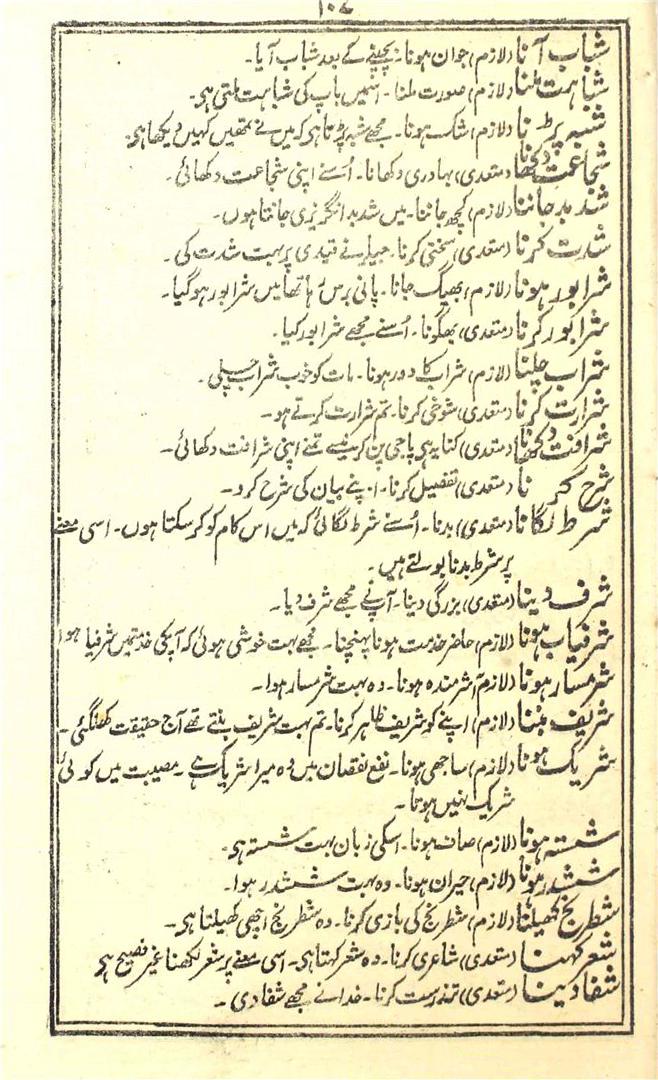 شباب آنا (لازم) جوان ہونا۔ بچپنے کے بعد شباب آیا۔
شباہت ملنا (لازم) صورت ملنا۔ انہیں باپ کی شباہت ملتی ہی۔
شبہ پڑنا (لازم) شک ہونا۔ مجھے شبہ پڑتا ہی کہ میں نے تمھیں کہیں دیکھا ہی۔
شجاعت دکھانا (متعدی) بہادری دکھانا۔ اُسنے اپنی شجاعت دکھائی۔
شد بد جاننا (لازم) کچھ جاننا۔ میں شد بد انگریزی جانتا ہوں۔
شدت کرنا (متعدی) سختی کرنا۔ جیلر نے قیدی پر بہت شدت کی۔
شرابور ہونا (لازم) بھیگ جانا۔ پانی برس رہا تھا میں شرابور ہوگیا۔
شرابور کرنا (متعدی) بھگونا۔ اُسنے مجھے شرابور کیا۔
شراب چلنا (لازم) شراب کا دور ہونا۔ رات کو خوب شراب چلی۔
شرارت کرنا (متعدی) شوخی کرنا۔ تم شرارت کرتے ہو۔
شرافت دکھانا (متعدی) کنایہ ہی پاجی پن کرنیسے تمنے اپنی شرافت دکھائی۔
شرح کرنا (متعدی) تفصیل کرنا۔ اپنے بیان کی شرح کرو۔
شرط لگانا (متعدی) بدنا۔ اُسنے شرط لگائی کہ میں اس کام کو کرسکتا ہوں۔ اسی معنے
پر شرط بدنا بولتے ہیں۔
شرف دینا (متعدی) بزرگی دینا۔ آپنے مجھے شرف دیا۔
شرفیاب ہونا (لازم) حاضر خدمت ہونا پہنچنا۔ مجھے بہت خوشی ہوئی کہ آپکی خدمتمیں شرفیاب ہوا
شرمسار ہونا (لازم) شرمندہ ہونا۔ وہ بہت شرمسار ہوا۔
شریف بننا (لازم) اپنے کو شریف ظاہر کرنا۔ تم بہت شریف بنتے تھے آج حقیقت کھلگئی۔
شریک ہونا (لازم) ساجھی ہونا۔ نفع نقصان میں وہ میرا شریک ہے۔ مصیبت میں کوئی
شریک نہیں ہوتا۔
شستہ ہونا (لازم) صاف ہونا۔ اسکی زبان بہت شستہ ہی۔
ششدر ہونا (لازم) حیران ہونا۔ وہ بہت ششدر ہوا۔
شطرنج کھیلنا (لازم) شطرنج کی بازی کرنا۔ وہ شطرنج اچھی کھیلتا ہی۔
شعر کہنا (متعدی) شاعری کرنا۔ وہ شعر کہتا ہی۔ اسی معنے پر شعر لکھنا غیر فصیح ہی
شفا دینا (متعدی) تندرست کرنا۔ خدا نے مجھے شفا دی۔